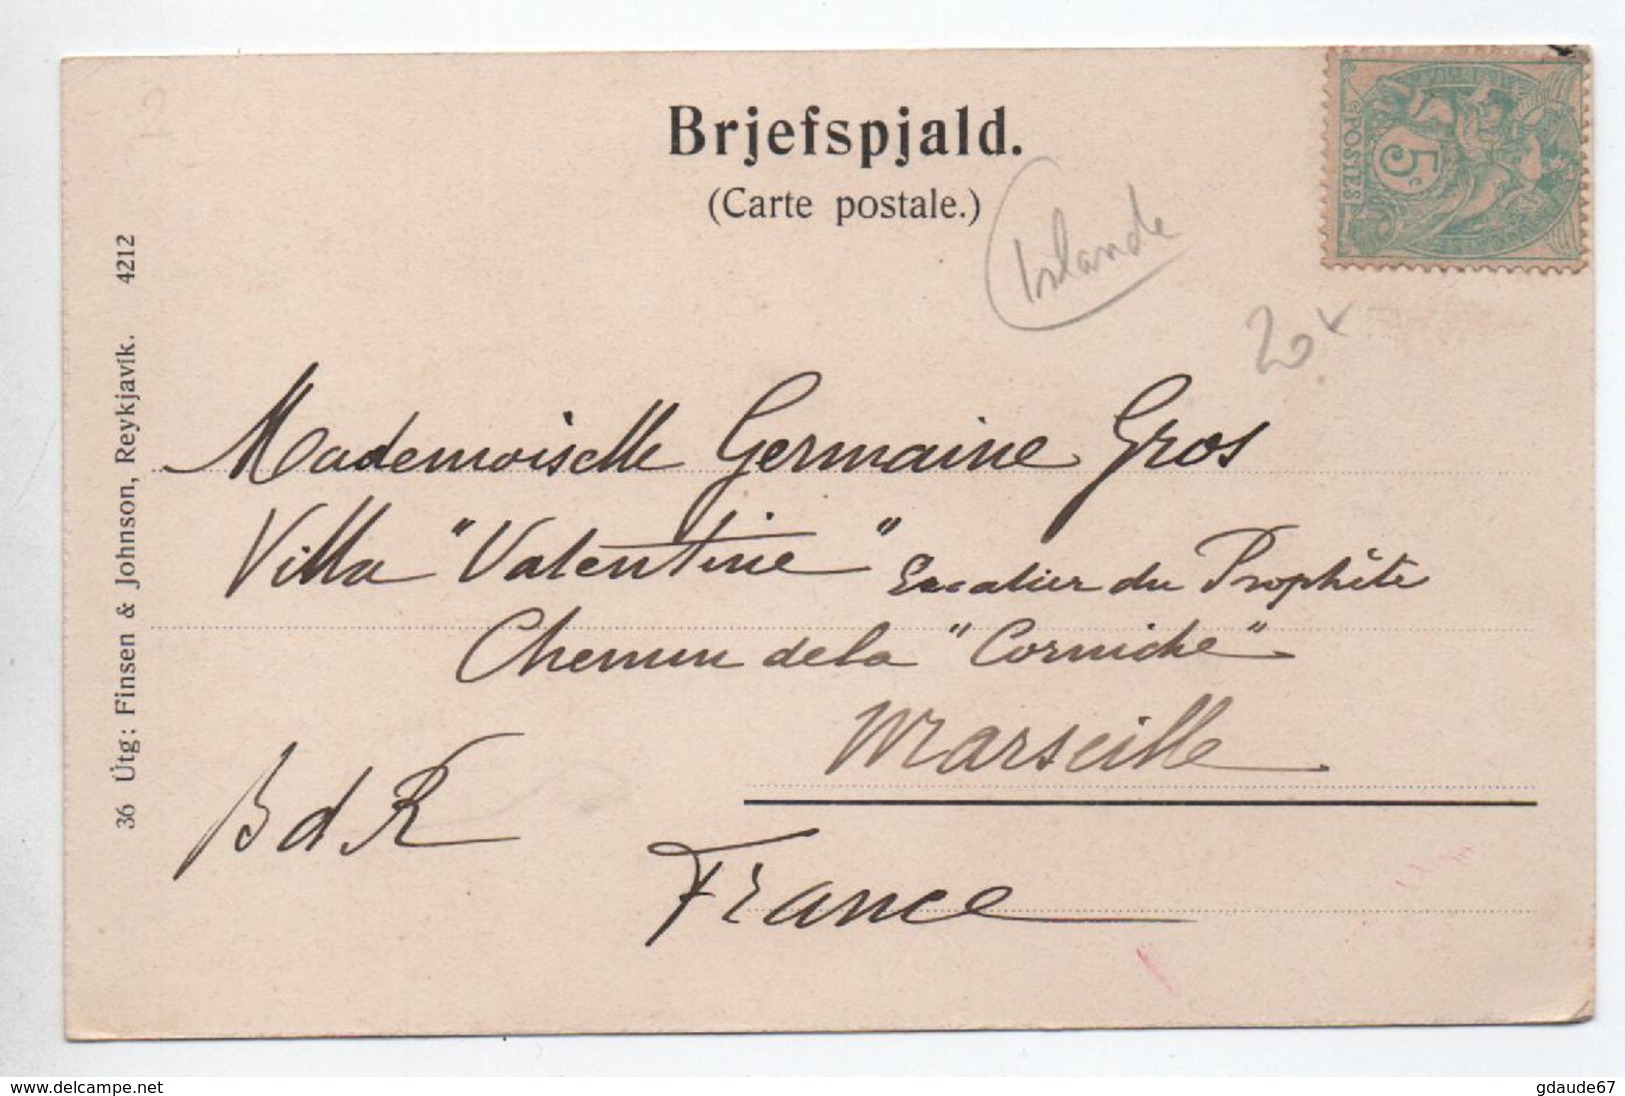 Brjefspjald.
(Carte postale.)
Islande
20
5c
POSTES
Mademoiselle Germaine Gros
Villa "Valentine" Escalier du Prophète
Chemin de la "Corniche"
Marseille
B d R
France
36 Útg: Finsen & Johnson, Reykjavík. 4212
www.delcampe.net
gdaude67